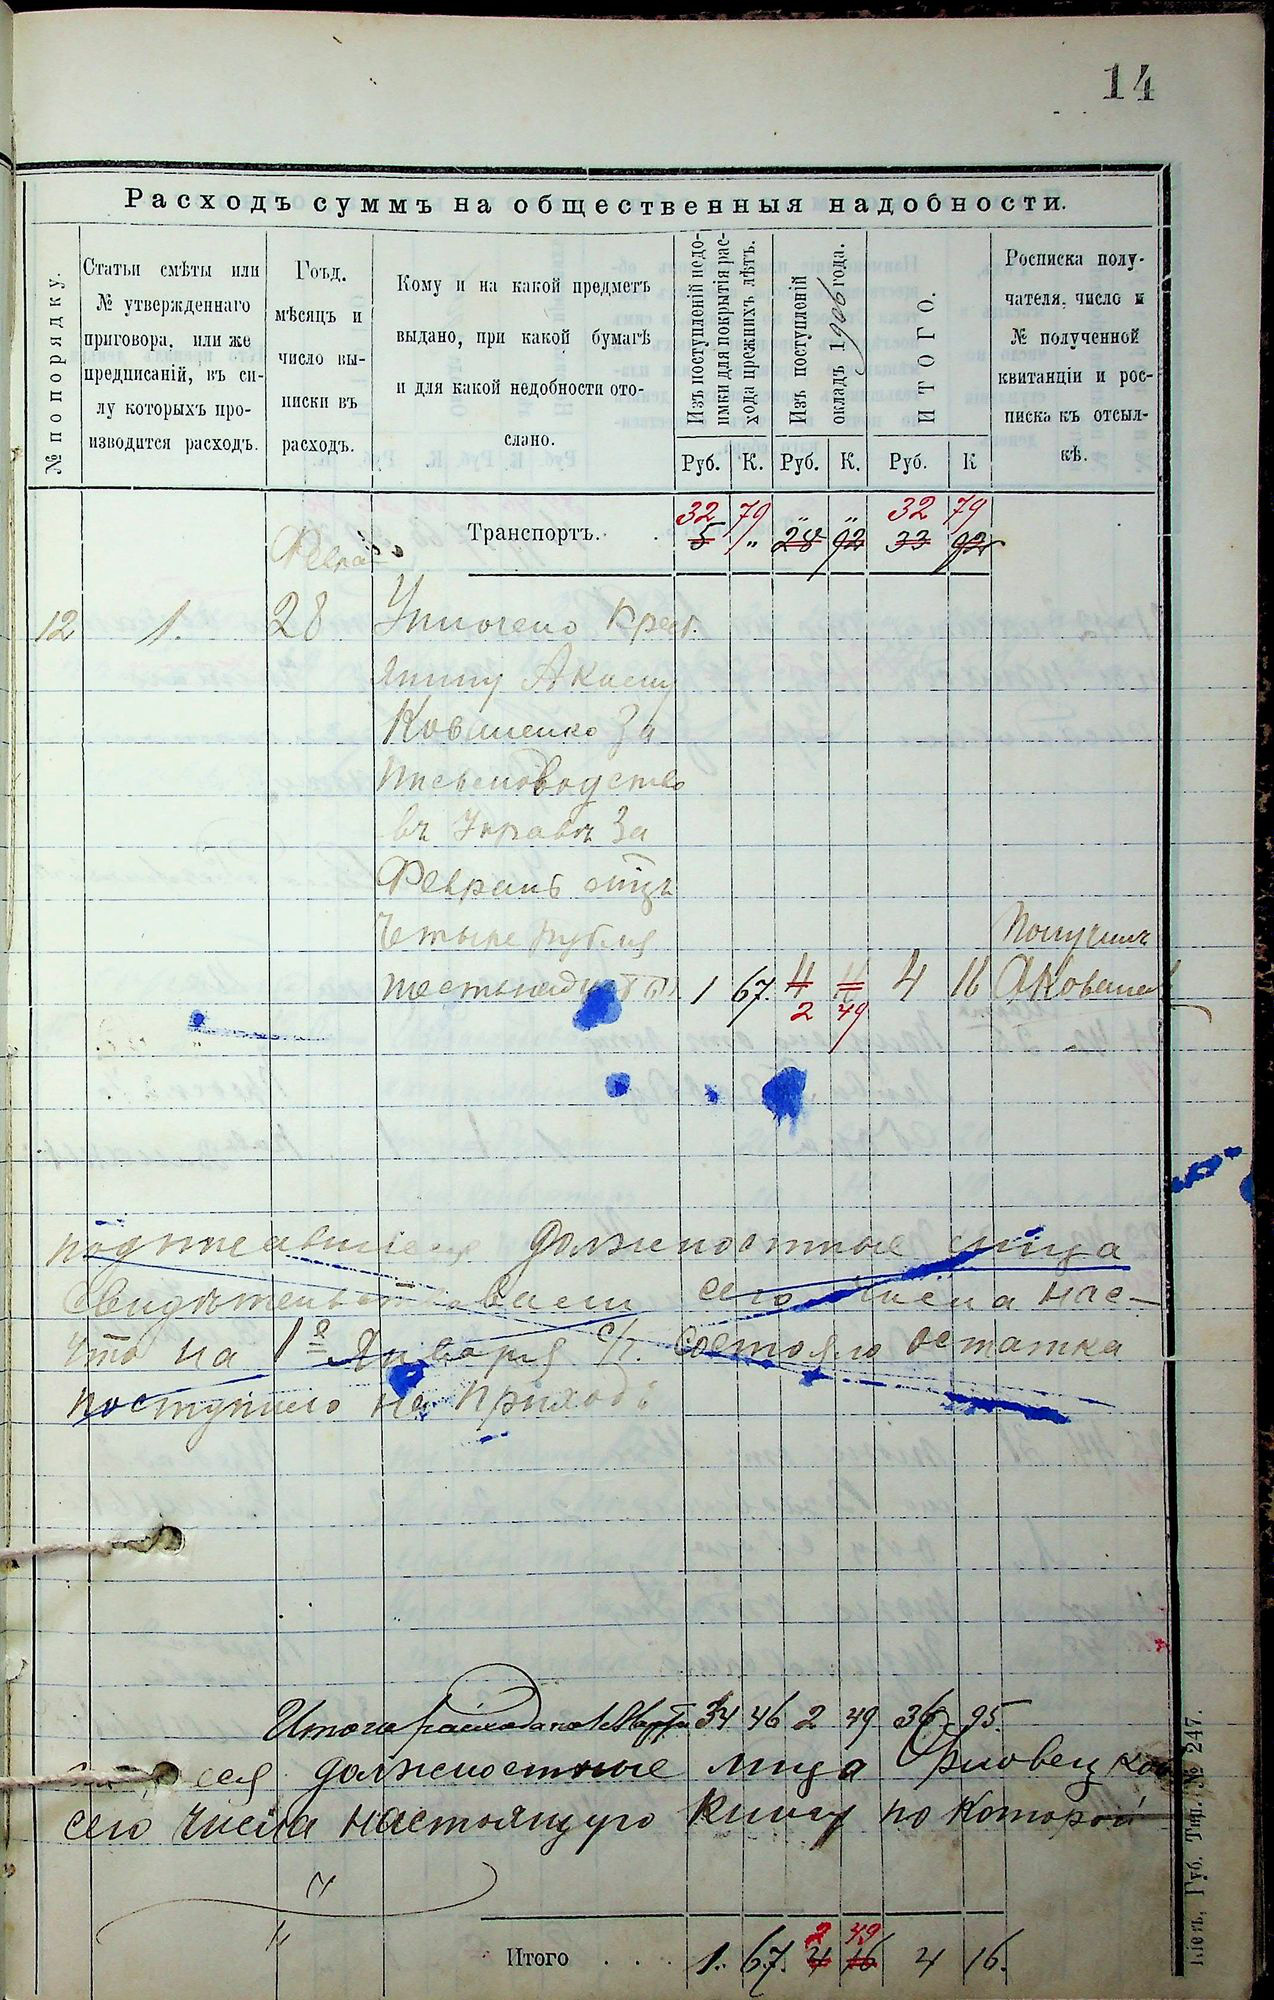 14
Расходъ суммъ на общественныя надобности.
№ по порядку.
Статьи смѣты или
№ утвержденнаго
приговора, или же
предписаній, въ си-
лу которыхъ про-
изводится расходъ.
Гоъд.
мѣсяцъ и
число вы-
писки въ
расходъ.
Кому и на какой предметъ
выдано, при какой бумагѣ
и для какой недобности ото-
слано.
Изъ поступленій недо-
имки для покрытія рас-
хода прежнихъ лѣтъ.
Изъ поступленій
окладъ 1906 года.
ИТОГО.
Росписка полу-
чателя, число и
№ полученной
квитанціи и рос-
писка къ отсыл-
кѣ.
Руб. К. Руб. К. Руб. К
32 79 „ „ 32 79
Транспортъ. 5 „ 28 92 33 92
Февра
12 1. 28 Уплочено Крест.
янину Акиму
Коваленко За
письмоводство
въ Управѣ За
Февраль мцъ
Четыре рубля Получилъ
шестьнадц 1 67. 4 16 4 16 АКовален
2 49
должностные лица
сего Числа нас-
что на 1е Января с/г. состояло остатка
поступило на Приходъ
Итого расхода на 1 Марта 34 46 2 49 36 95.
должностные лица Орловец
сего числа настоящую книгу по которой
2 49
Итого 1. 67. 4 16 4 16.
Губ. Тип. № 247.